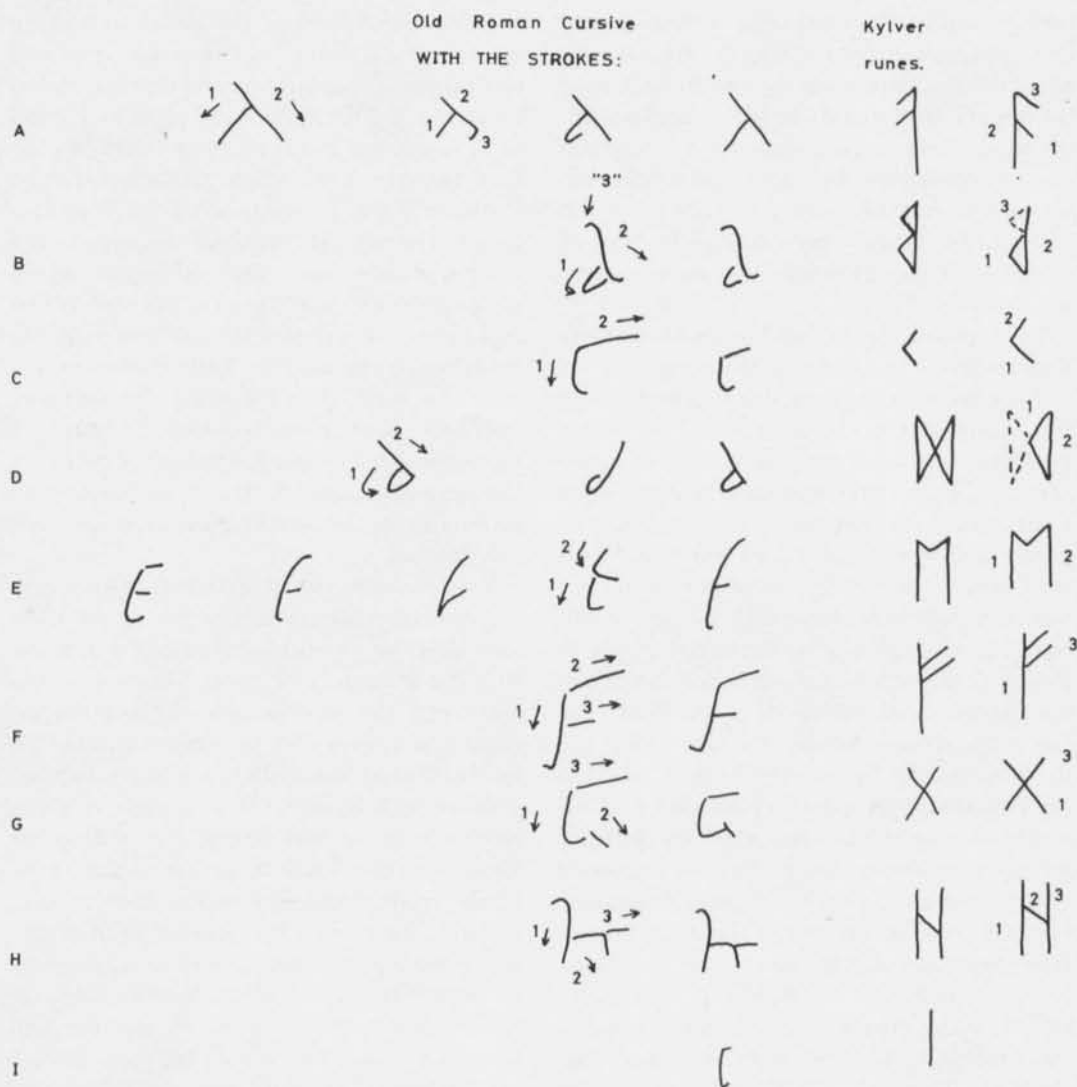 Old Roman Cursive
WITH THE STROKES:
Kylver
runes.
A 1 2 1 2 3 3 2 1
B "3" 1 2 3 1 2
C 1 2 2
D 1 2 1 2
E 2 1 1 2
F 2 3 1 1 3
G 3 1 2 3 1
H 1 3 2 1 2 3
I